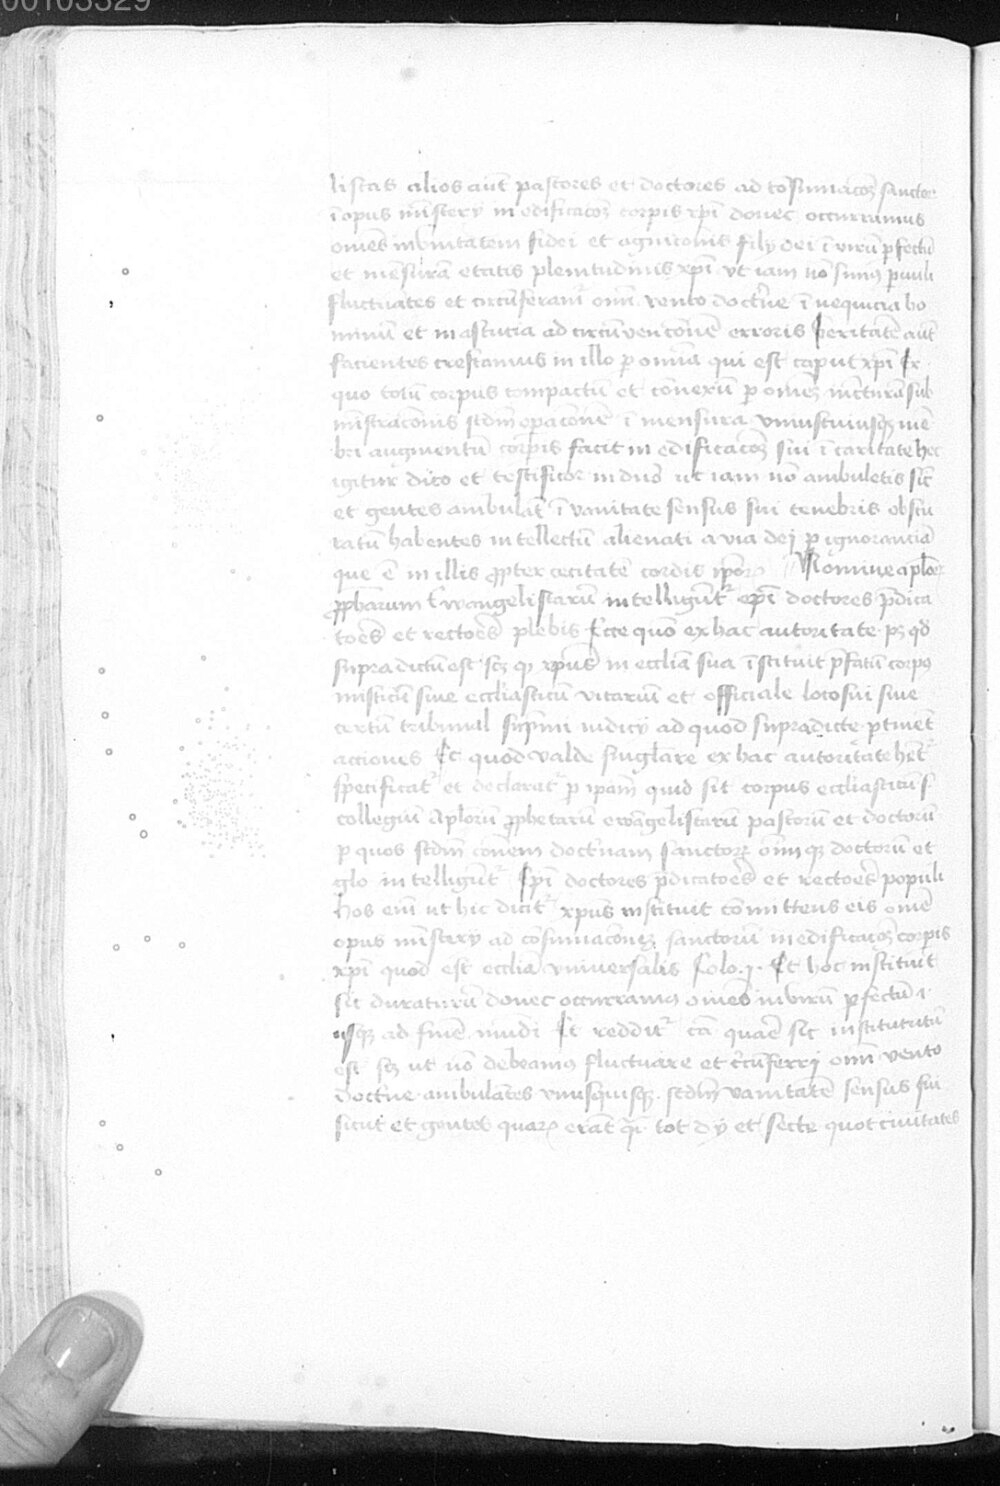 00103329
listas alios aūt pastores et doctores ad cōsumacōꝫ sanctoꝝ
ī opus mīstery in edificacōꝫ corpis xp̄i donec occurramus
omēs in vnitatem fidei et agnicionis fily dei ī virū ꝑfectū
et mēsurā etatis plenitudinis xp̄i vt iam nō simꝰ ꝑuuli
fluctuātes et circūferamr̄ omi vento doctrīe ī nequicia ho
minū et in astucia ad circūvencōnē erroris Veritatē aūt
facientes crescamus in illo ꝑ omnia qui est caput xp̄i Ex
quo totū corpus compactū et cōnexū ꝑ omēꝫ iūcturā sub
mīstracōnis scd̄m oꝑacōnē ī mensurā vniuscuiusqꝫ mē
bri augmentū corpis facit in edificacōꝫ sui ī caritate hec
igitur dico et testificor in dn̄o ut iam nō ambuletis sic̄
et gentes ambulāt ī vanitate sensus sui tenebris obscu
ratū habentes intellectū alienati a via dei ꝑ ignoranciā
que ē in illis ꝓpter cecitatē cordis ip̄oꝝ Nomine aploꝝ
ꝓphetarum Ewangelistarū intelligūtr̄ ep̄i doctores p̄dica
toēs et rectoēs plebis Ecce quō ex hac autoritate pꝫ qđ
supradictū est scꝫ qꝫ xpūs in eccliā sua īstituit p̄fatū corpꝰ
misticū siue eccliasticū vicariū et officiale loco sui siue
certū tribunal supimi iudicy ad quod supradicte ꝑtinēt
acciones Et quod valde singlare ex hac autoritate hētr̄
specificatr̄ et declaratr̄ ꝑ ipam quid sit corpus eccliasticū s̄
collegiū Aplorū ꝓphetarū ewāgelistarū pastorū et doctorū
ꝑ quos scd̄m cōnem doctrinam sanctoꝝ omīqꝫ doctorū et
glo intelligūtr̄ Epī doctores p̄dicatoēs et rectoēs populi
hos em̄ ut hic dicitr̄ xpūs instituit cōmittens eis omē
opus mīstery ad cōsumacōneꝫ sanctorū in edificacōꝫ corpis
xp̄i quod est ecclia vniuersalis Et hoc instituit
sic duraturū donec occurramꝰ omēs in virū ꝑfectū .i.
usqꝫ ad finē mūdi Et redditr̄ cā quare sic institutū
est scꝫ ut nō debeamꝰ fluctuare et circūferri omi vento
doctrīe ambulātes vnusquisqꝫ scd̄m vanitatē sensus sui
sicut et gentes quaꝝ erāt tot dy et secte quot ciuitates